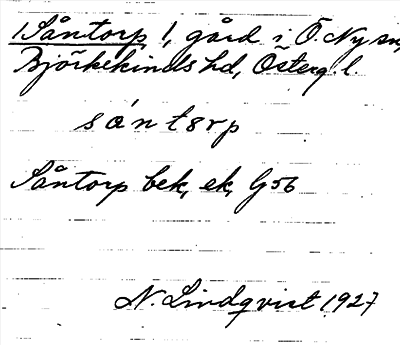 1 Såntorp 1, gård i Ö. Ny sn,
Björkekinds hd, Österg. l.
sántorp
Såntorp bek, ek, G56
N. Lindqvist 1927